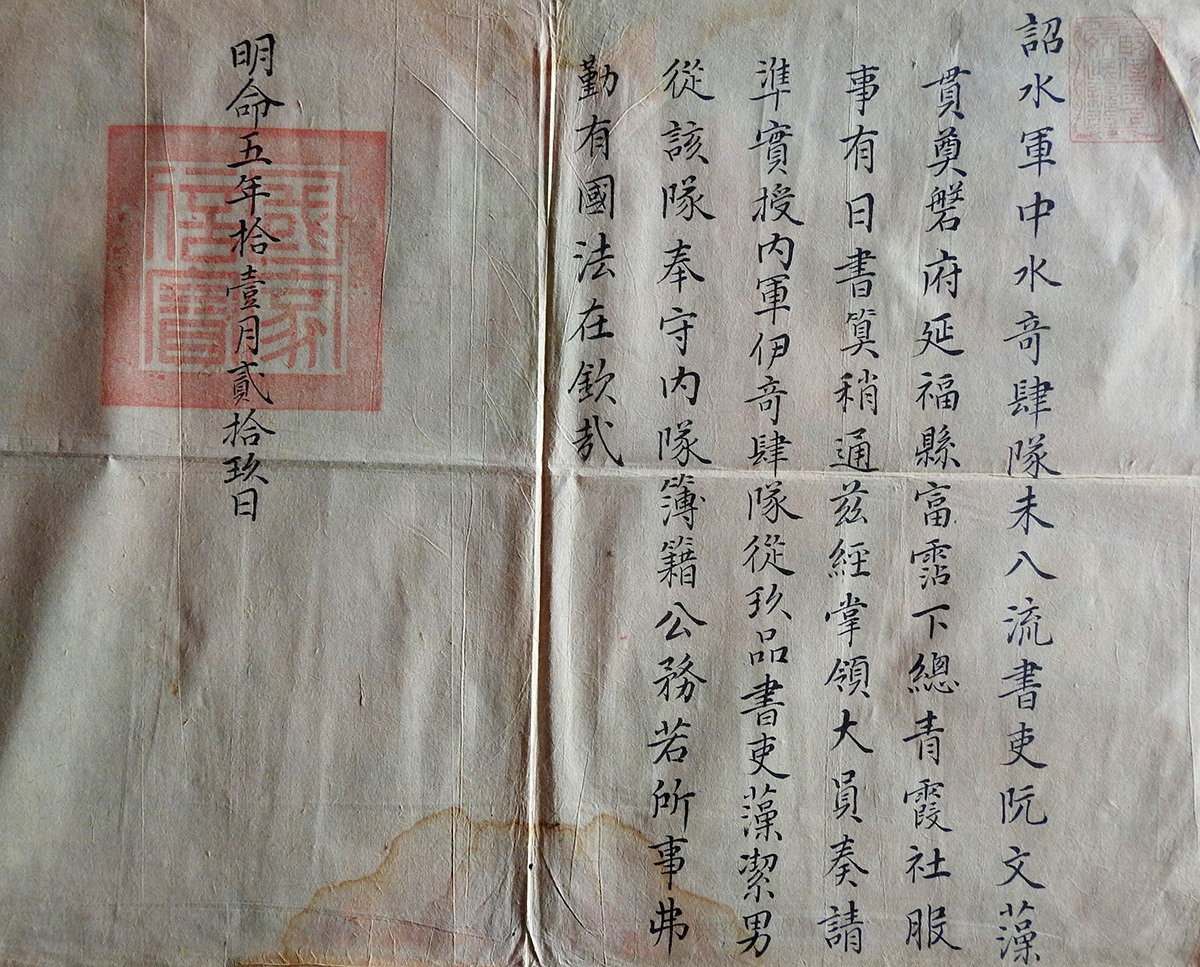 詔水軍中水奇肆隊未入流書吏阮文藻
貫奠磐府延福縣富霑下總青霞社服
事有日書算稍通茲經掌領大員奏請
準實授內軍伊奇肆隊從玖品書吏藻潔男
從該隊奉守內隊簿籍公務若所事弗
勤有國法在欽哉
明命五年拾壹月貳拾玖日
國家信寶